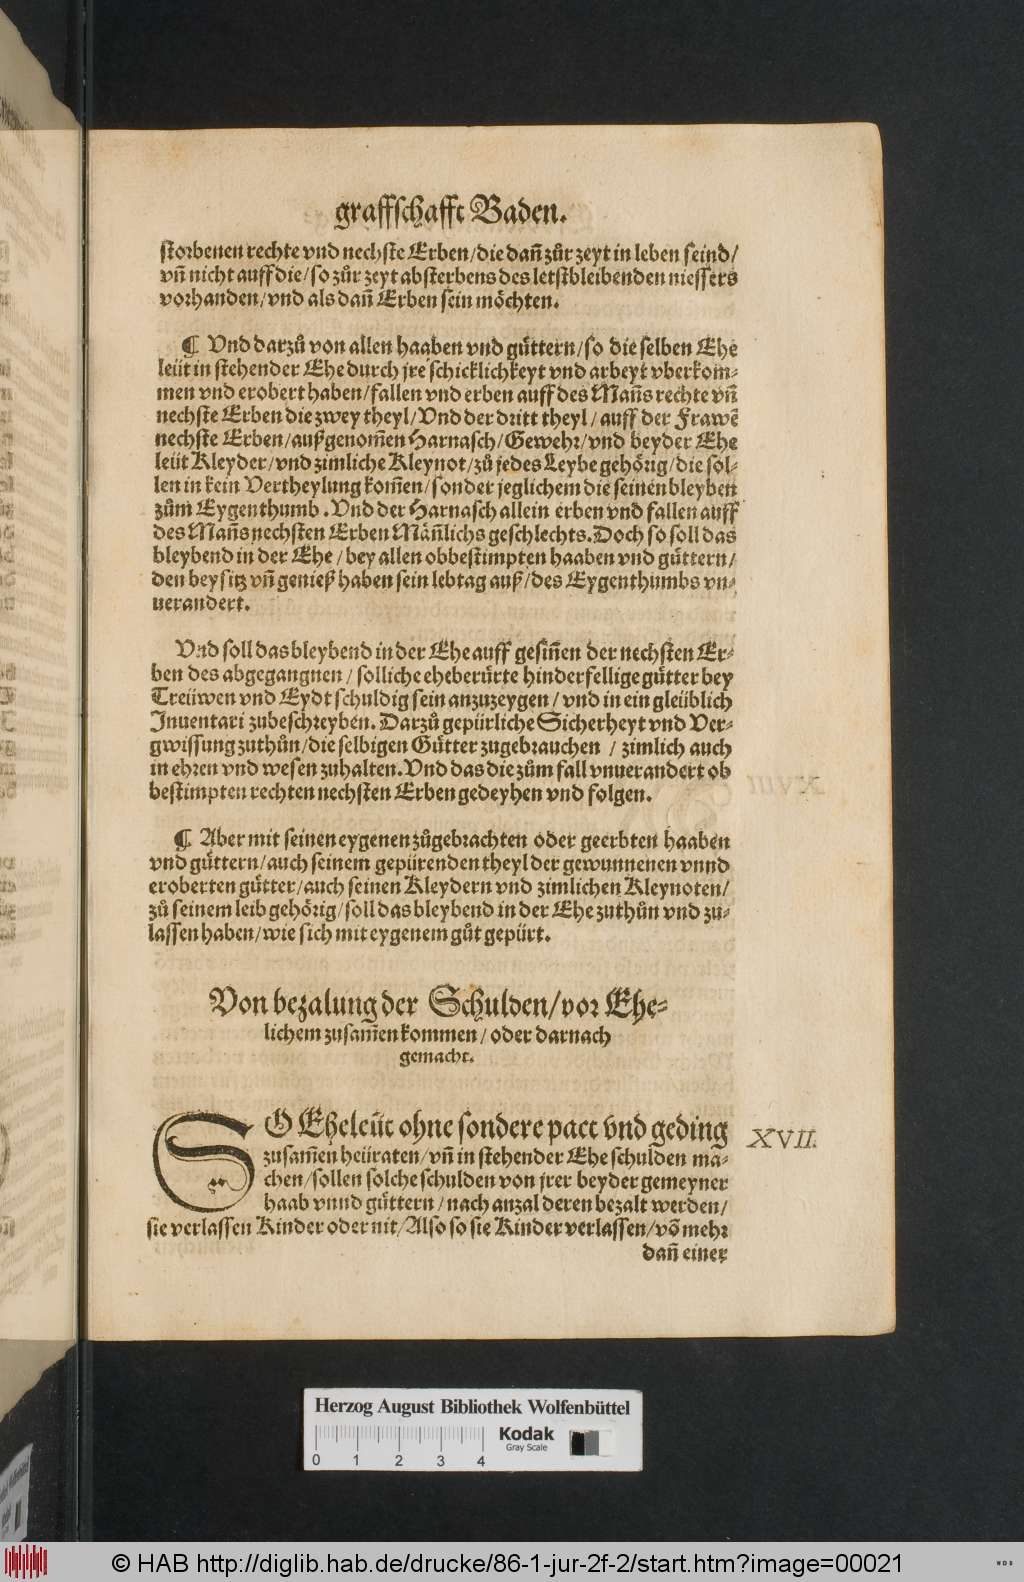 graffschafft Baden.
storbenen rechte vnd nechste Erben/die dañ zůr zeyt in leben seind/
vñ nicht auff die/so zůr zeyt absterbens des letstbleibenden niessers
vorhanden/vnd als dañ Erben sein möchten.
¶ Vnd darzů von allen haaben vnd güttern/so die selben Ehe
leüt in stehender Ehe durch jre schicklichkeyt vnd arbeyt vberkom-
men vnd erobert haben/fallen vnd erben auff des Mañs rechte vñ
nechste Erben die zwey theyl/Vnd der dritt theyl/auff der Frawẽ
nechste Erben/außgenom̃en Harnasch/Gewehr/vnd beyder Ehe
leüt Kleyder/vnd zimliche Kleynot/zů jedes Leybe gehörig/die sol-
len in kein Vertheylung kom̃en/sonder jeglichem die seinen bleyben
zům Eygenthumb. Vnd der Harnasch allein erben vnd fallen auff
des Mañs nechsten Erben Mäñlichs geschlechts. Doch so soll das
bleybend in der Ehe/bey allen obbestimpten haaben vnd güttern/
den beysitz vñ genieß haben sein lebtag auß/des Eygenthumbs vn-
uerandert.
Vnd soll das bleybend in der Ehe auff gesiñen der nechsten Er-
ben des abgegangnen/solliche eheberürte hinderfellige gütter bey
Treüwen vnd Eydt schuldig sein anzuzeygen/vnd in ein gleüblich
Inuentari zubeschreyben. Darzů gepürliche Sicherheyt vnd Ver-
gwissung zuthůn/die selbigen Gütter zugebrauchen/zimlich auch
in ehren vnd wesen zuhalten. Vnd das die zům fall vnuerandert ob
bestimpten rechten nechsten Erben gedeyhen vnd folgen.
¶ Aber mit seinen eygenen zůgebrachten oder geerbten haaben
vnd güttern/auch seinem gepürenden theyl der gewunnenen vnnd
eroberten gütter/auch seinen Kleydern vnd zimlichen Kleynoten/
zů seinem leib gehörig/soll das bleybend in der Ehe zuthůn vnd zu-
lassen haben/wie sich mit eygenem gůt gepürt.
Von bezalung der Schulden/vor Ehe-
lichem zusam̃en kommen/oder darnach
gemacht.
SO Eheleüt ohne sondere pact vnd geding
XVII.
zusam̃en heüraten/vñ in stehender Ehe schulden ma-
chen/sollen solche schulden von jrer beyder gemeyner
haab vnnd güttern/nach anzal deren bezalt werden/
sie verlassen Kinder oder nit/Also so sie Kinder verlassen/võ mehr
dañ einer
Herzog August Bibliothek Wolfenbüttel
Kodak
Gray Scale
0 1 2 3 4
© HAB http://diglib.hab.de/drucke/86-1-jur-2f-2/start.htm?image=00021